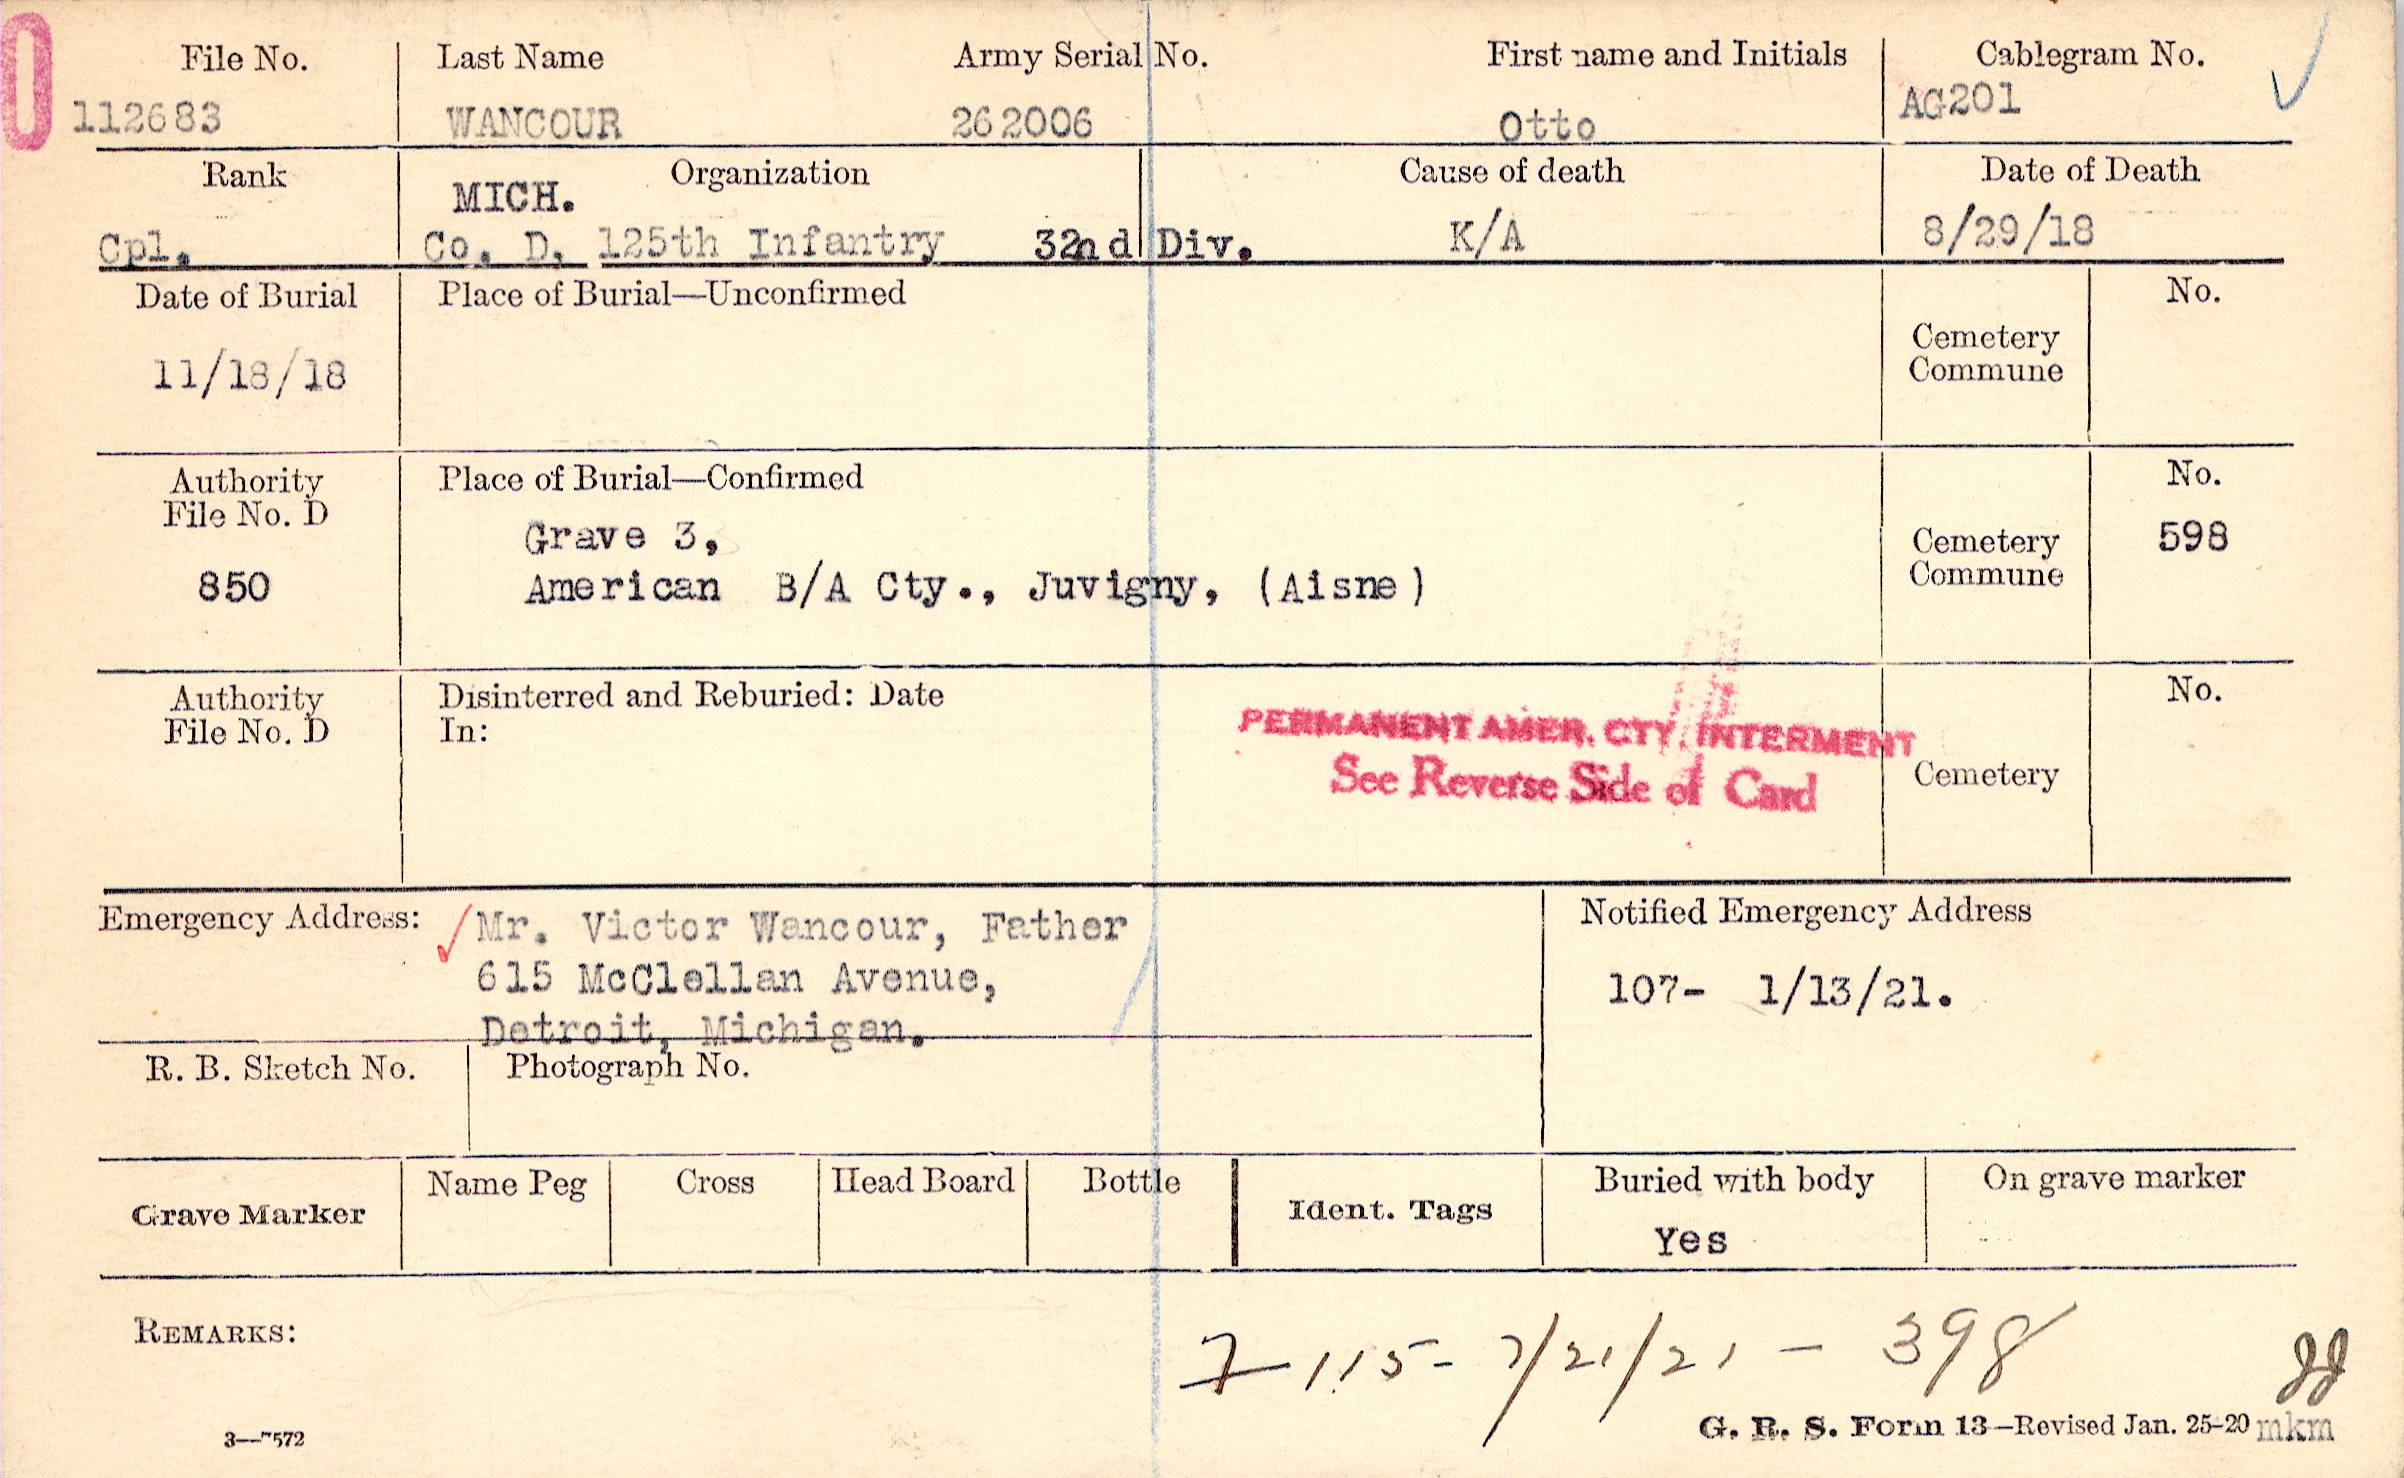 File No. Last Name Army Serial No. First name and Initials Cablegram No.
112683 WANCOUR 262006 Otto AG201
Rank Organization Cause of death Date of Death
MICH.
Cpl. Co. D, 125th Infantry 32nd Div. K/A 8/29/18
Date of Burial Place of Burial—Unconfirmed No.
Cemetery
Commune
11/18/18
Authority Place of Burial—Confirmed No.
File No. D
Grave 3, Cemetery 598
850 American B/A Cty., Juvigny, (Aisne) Commune
Authority Disinterred and Reburied: Date No.
File No. D In:
PERMANENT AMER. CTY. INTERMENT
See Reverse Side of Card
Cemetery
Emergency Address: Mr. Victor Wancour, Father Notified Emergency Address
615 McClellan Avenue, 107- 1/13/21.
Detroit, Michigan.
R. B. Sketch No. Photograph No.
Grave Marker Name Peg Cross Head Board Bottle Ident. Tags Buried with body On grave marker
Yes
REMARKS:
115- 7/21/21 - 398
3—7572 G. R. S. Form 13—Revised Jan. 25-20 mkm